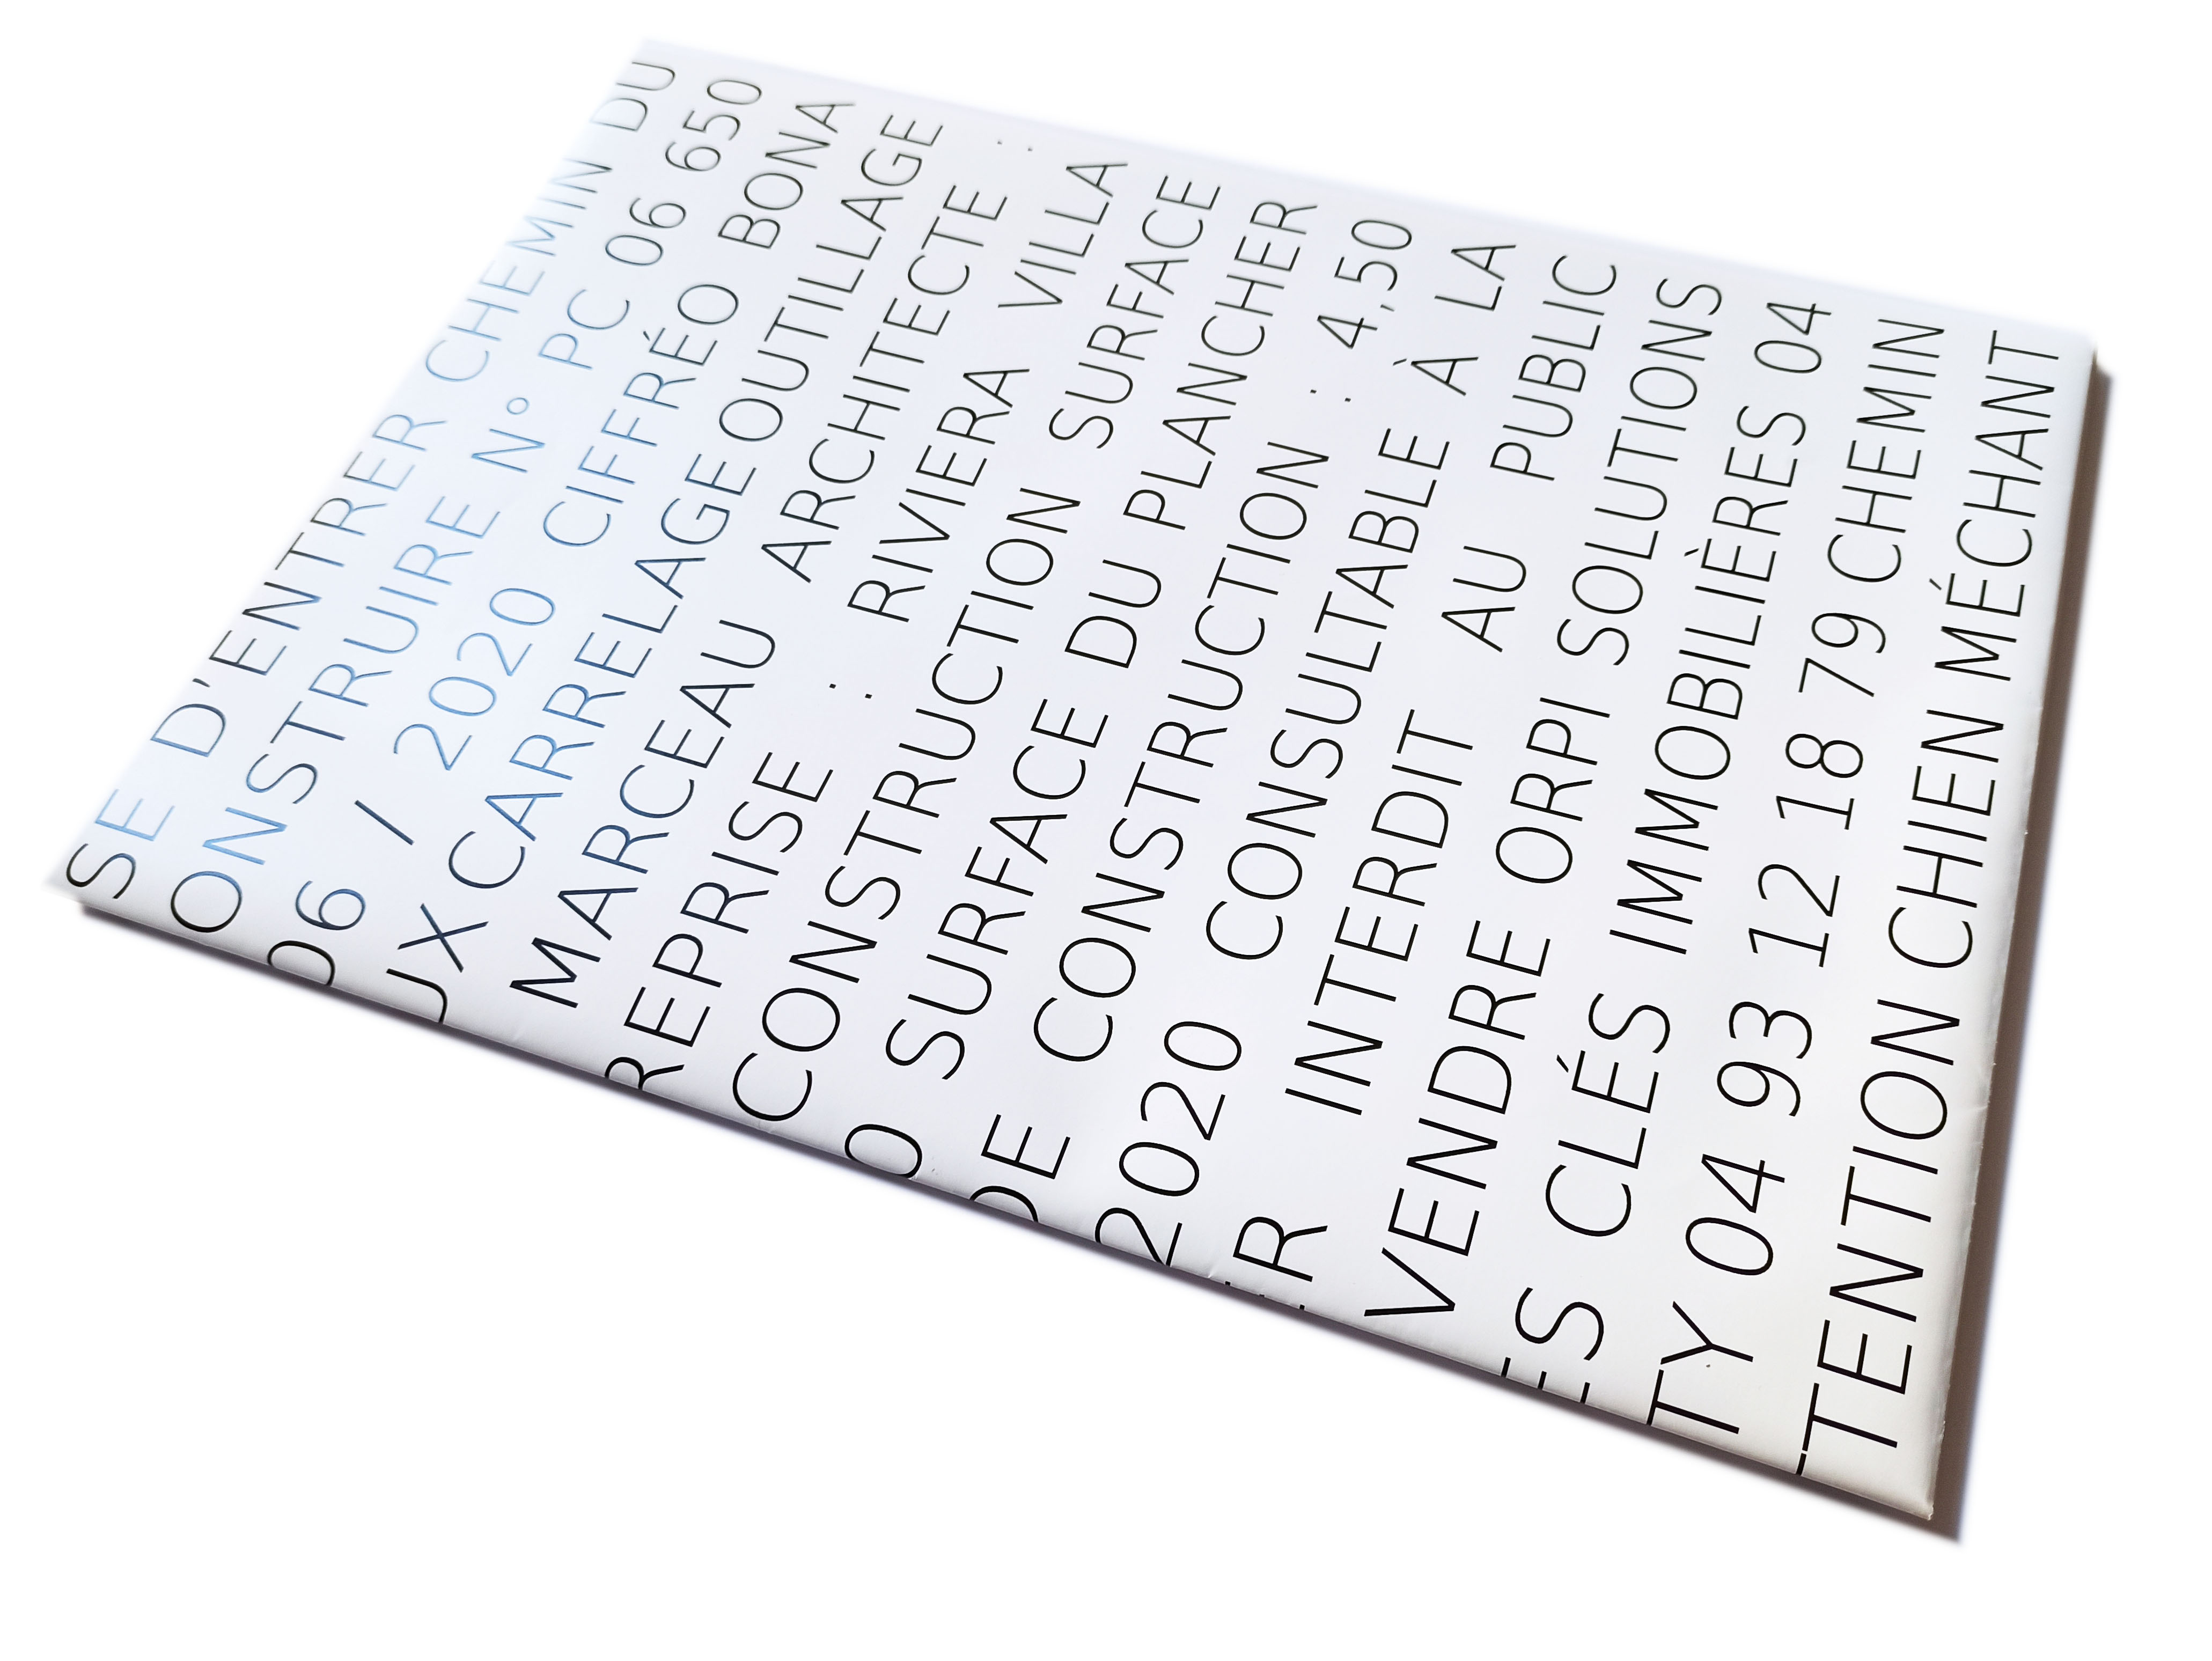 SE D'ENTRER CHEMIN DU
ONSTRUIRE N° PC 06 650
06 / 2020 CIFFRÉO BONA
UX CARRELAGE OUTILLAGE
MARCEAU ARCHITECTE :
REPRISE : RIVIERA VILLA
CONSTRUCTION SURFACE
0 SURFACE DU PLANCHER
DE CONSTRUCTION : 4,50
2020 CONSULTABLE À LA
R INTERDIT AU PUBLIC
VENDRE ORPI SOLUTIONS
ES CLÉS IMMOBILIÈRES 04
TY 04 93 12 18 79 CHEMIN
TENTION CHIEN MÉCHANT